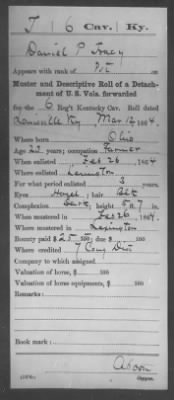 T 6 Cav. Ky.
Daniel P Tracy
Appears with rank of Pvt on
Muster and Descriptive Roll of a Detach-
ment of U. S. Vols. forwarded
for the 6 Reg't Kentucky Cav. Roll dated
Louisville Ky Mar 12, 1864.
Where born Ohio
Age 23 years; occupation Farmer
When enlisted Feb 26, 1864
Where enlisted Lexington
For what period enlisted 3 years.
Eyes Hazel; hair Blk
Complexion Dark; height 5 ft. 7 in.
When mustered in Feb 26, 1864.
Where mustered in Lexington
Bounty paid $ 25 100; due $ 100
Where credited 7 Cong Dist
Company to which assigned
Valuation of horse, $ 100
Valuation of horse equipments, $ 100
Remarks:
Book mark:
Copyist.